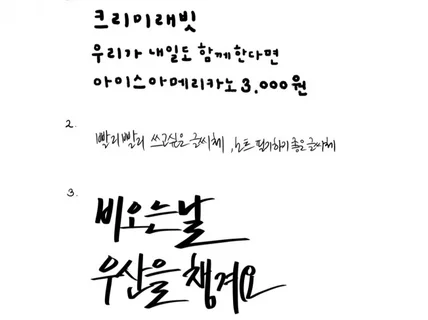 크리미래빗
우리가 내일도 함께한다면
아이스아메리카노 3,000원
2.
빨리빨리 쓰고싶은 글씨체, 노트 필기하기 좋은 글씨체
3.
비오는날
우산을 챙겨요